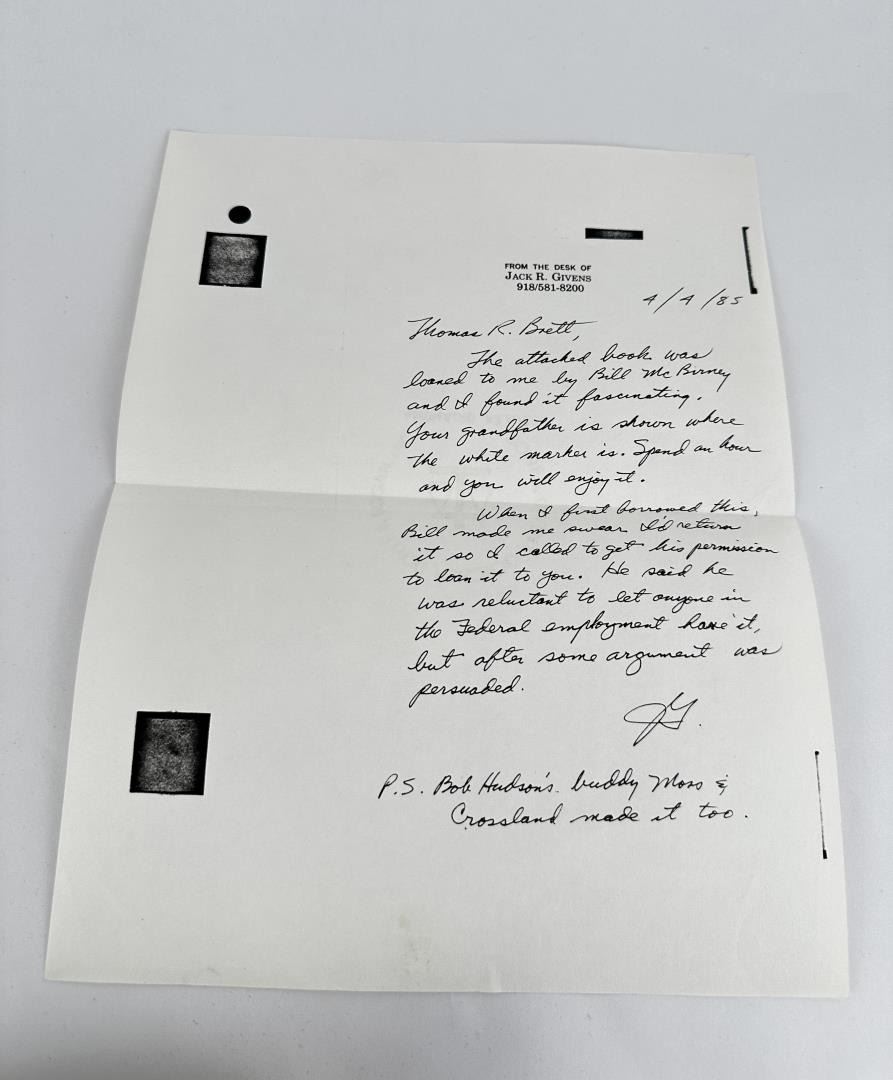 FROM THE DESK OF
JACK R. GIVENS
918/581-8200
4/4/85
Thomas R. Brett,
The attached book was
loaned to me by Bill McBirney
and I found it fascinating.
Your grandfather is shown where
the white marker is. Spend an hour
and you will enjoy it.
When I first borrowed this,
Bill made me swear I'd return
it so I called to get his permission
to loan it to you. He said he
was reluctant to let anyone in
the Federal employment have it,
but after some argument was
persuaded.
JG.
P.S. Bob Hudson's buddy Moss &
Crossland made it too.